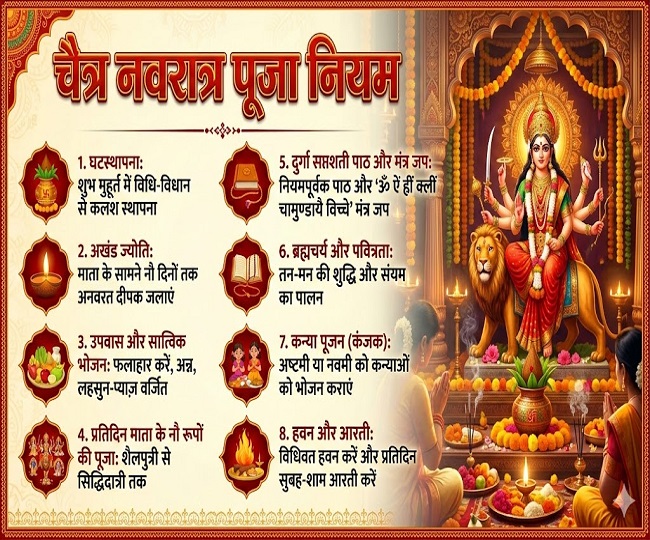 चैत्र नवरात्र पूजा नियम
1. घटस्थापना:
शुभ मुहूर्त में विधि-विधान
से कलश स्थापना
2. अखंड ज्योति:
माता के सामने नौ दिनों तक
अनवरत दीपक जलाएं
3. उपवास और सात्विक
भोजन: फलाहार करें, अन्न,
लहसुन-प्याज़ वर्जित
4. प्रतिदिन माता के नौ रूपों
की पूजा: शैलपुत्री से
सिद्धिदात्री तक
5. दुर्गा सप्तशती पाठ और मंत्र जप:
नियमपूर्वक पाठ और ‘ॐ ऐं ह्रीं क्लीं
चामुण्डायै विच्चे’ मंत्र जप
6. ब्रह्मचर्य और पवित्रता:
तन-मन की शुद्धि और संयम
का पालन
7. कन्या पूजन (कंजक):
अष्टमी या नवमी को कन्याओं
को भोजन कराएं
8. हवन और आरती:
विधिवत हवन करें और प्रतिदिन
सुबह-शाम आरती करें